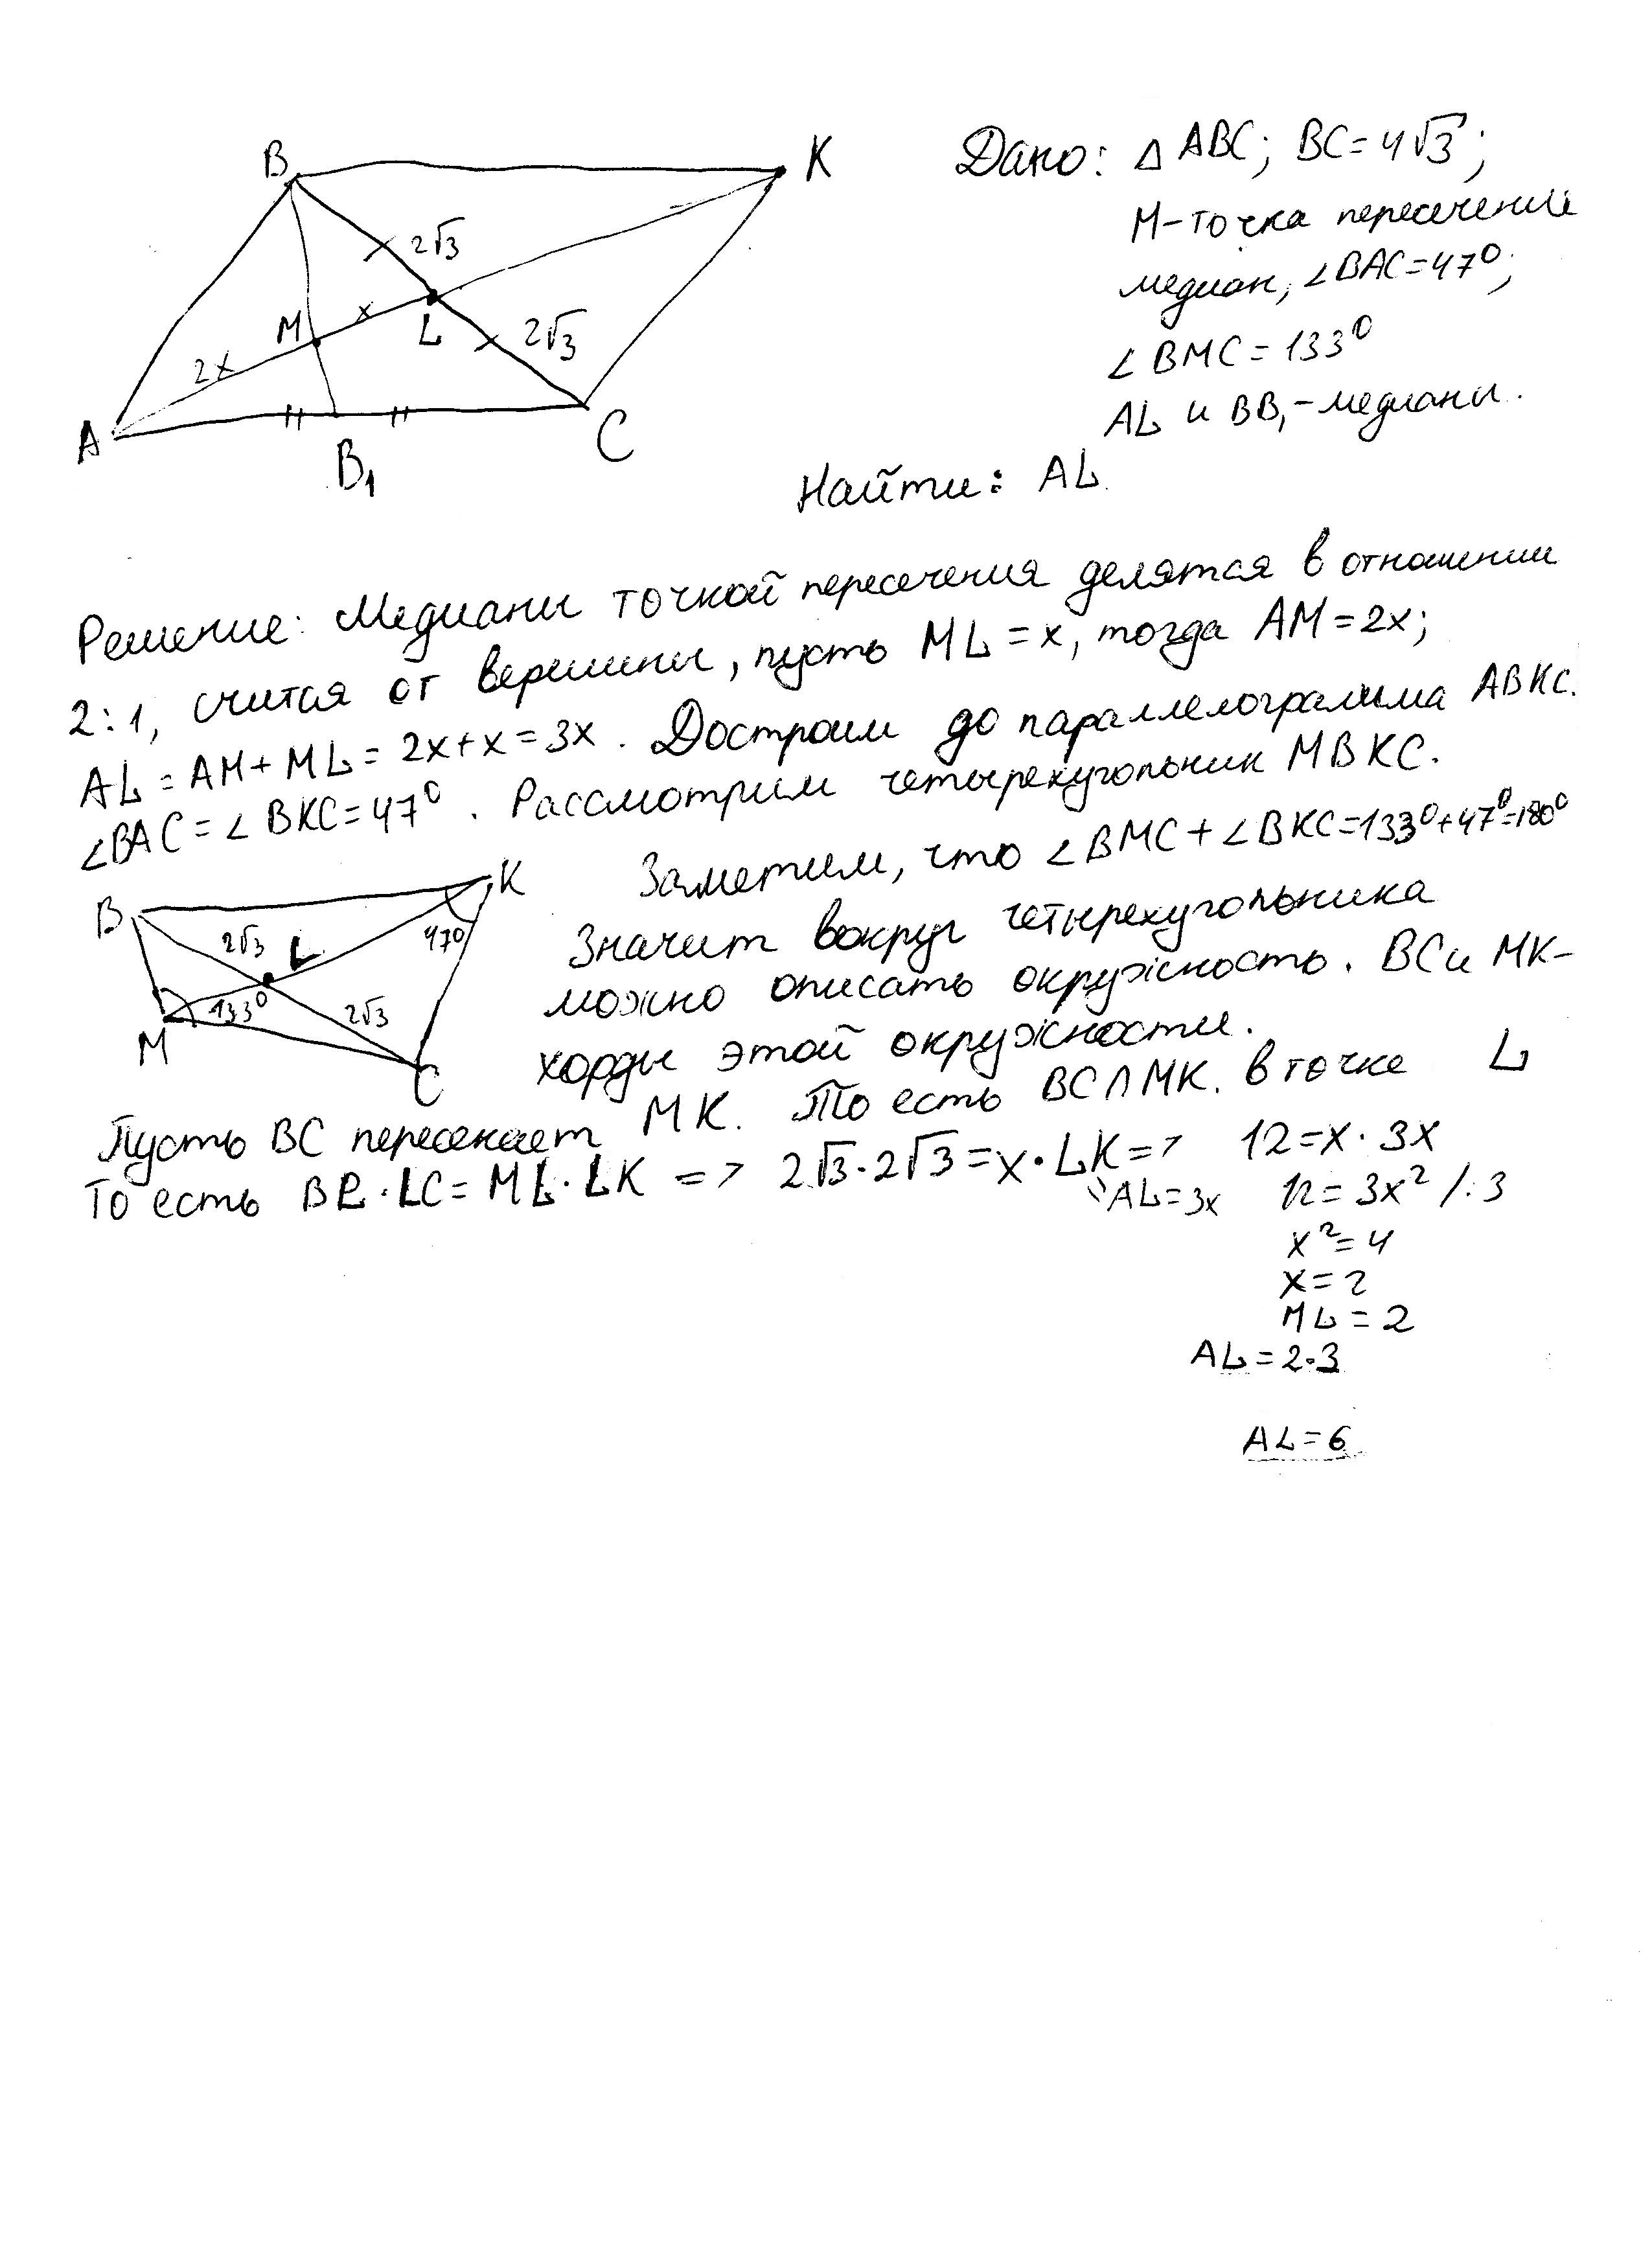 B
K
Дано: △ ABC; BC=4√3;
M-точка пересечения
медиан, ∠BAC=47⁰;
∠BMC=133⁰
AL и BB₁-медианы.
Найти: AL
2√3
M
x
L
2√3
2x
A
B₁
C
Решение: Медианы точкой пересечения делятся в отношении
2:1, считая от вершины, пусть ML=x, тогда AM=2x;
AL=AM+ML=2x+x=3x. Достроим до параллелограмма ABKC.
∠BAC=∠BKC=47⁰. Рассмотрим четырехугольник MBKC.
Заметим, что ∠BMC+∠BKC=133⁰+47⁰=180⁰
Значит вокруг четырехугольника
можно описать окружность. BC и MK-
хорды этой окружности.
B
K
2√3
L
47⁰
133⁰
2√3
M
C
Пусть BC пересекает MK. То есть BC∩MK. в точке L
То есть BL·LC=ML·LK => 2√3·2√3=x·LK=> 12=x·3x
AL=3x
12=3x² /:3
x²=4
x=2
ML=2
AL=2·3
AL=6